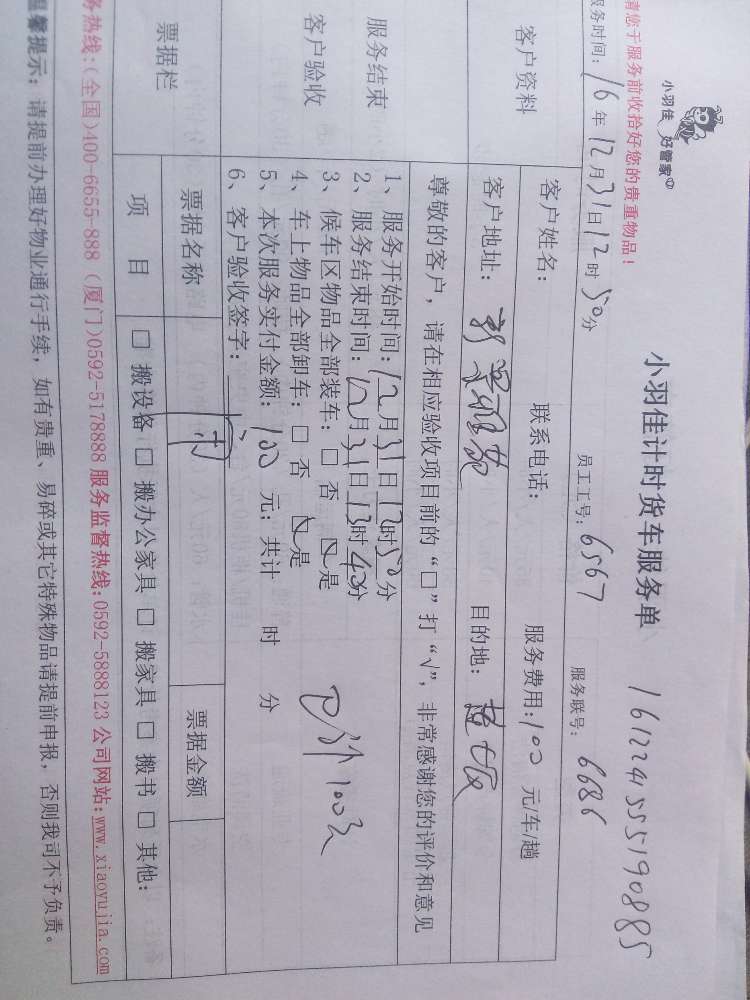 小羽佳 好管家
小羽佳计时货车服务单
1612241555190885
请您于服务前收拾好您的贵重物品！
服务时间：16年12月31日12时50分 员工工号：6567 服务联号：6686
客户资料
客户姓名： 联系电话： 服务费用：100 元/车/趟
客户地址： 目的地：
尊敬的客户，请在相应验收项目前的“□”打“√”，非常感谢您的评价和意见
服务结束
客户验收
1、服务开始时间：12月31日12时50分
2、服务结束时间：12月31日13时40分
3、候车区物品全部装车：□ 否 ☑是
4、车上物品全部卸车：□ 否 ☑是
5、本次服务实付金额：100 元；共计 时 分
6、客户验收签字：
100元
票据栏
票据名称 票据金额
项 目 □ 搬设备 □ 搬办公家具 □ 搬家具 □ 搬书 □ 其他：
务热线：（全国）400-6655-888（厦门）0592-5178888 服务监督热线：0592-5888123 公司网站：www.xiaoyujia.com
温馨提示：请提前办理好物业通行手续，如有贵重、易碎或其它特殊物品请提前申报，否则我司不予负责。